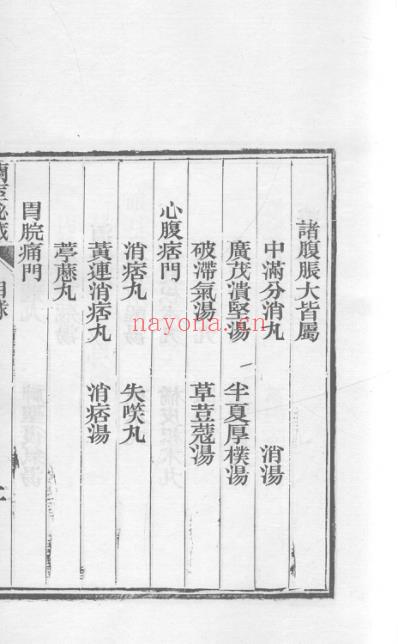 諸腹脹大皆屬
中滿分消丸 消湯
廣茂潰堅湯 半夏厚樸湯
破滯氣湯 草荳蔻湯
心腹痞門
消痞丸 失咲丸
黃連消痞丸 消痞湯
葶藶丸
胃脘痛門
蘭室秘藏 目錄
nayona.cn